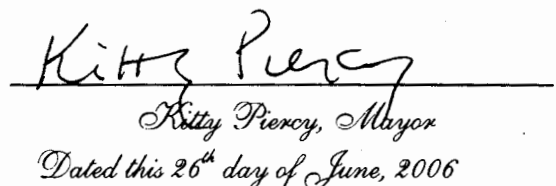 Kitty Piercy
Kitty Piercy, Mayor
Dated this 26th day of June, 2006